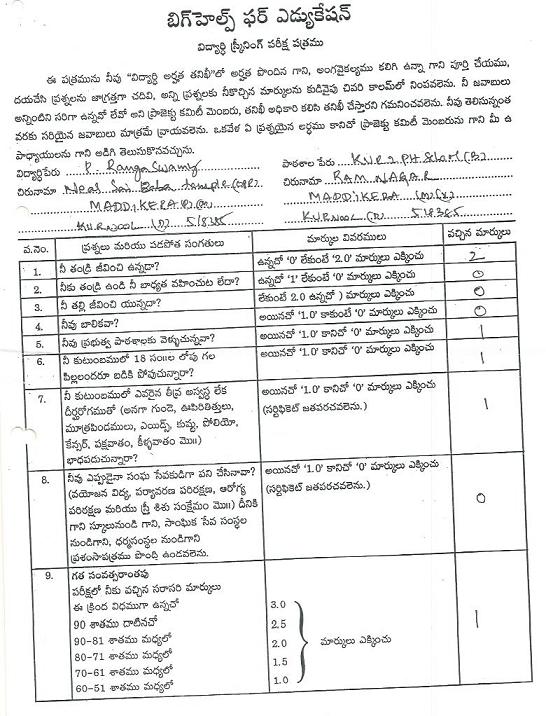 బిగ్‌హెల్ప్ ఫర్ ఎడ్యుకేషన్
విద్యార్థి స్క్రీనింగ్ పరీక్ష పత్రము
ఈ పత్రమును నీవు "విద్యార్థి అర్హత తనిఖీ"లో అర్హత పొందిన గాని, అంగవైకల్యము కలిగి ఉన్నా గాని పూర్తి చేయుము,
దయచేసి ప్రశ్నలను జాగ్రత్తగా చదివి, అన్ని ప్రశ్నలకు నీకొచ్చిన మార్కులను కుడివైపు చివరి కాలమ్‌లో నింపవలెను. నీ జవాబులు
అన్నింటిని సరిగా ఉన్నవో లేవో అని ప్రాజెక్టు కమిటీ మెంబరు, తనిఖీ అధికారి కలిసి తనిఖీ చేస్తారని గమనించవలెను. నీవు తెలిసున్నంత
వరకు సరియైన జవాబులు మాత్రమే వ్రాయవలెను. ఒకవేళ ఏ ప్రశ్నయైన అర్థము కానిచో ప్రాజెక్టు కమిటీ మెంబరును గాని మీ ఉ
పాధ్యాయులను గాని అడిగి తెలుసుకొనవచ్చును.
విద్యార్థిపేరు P. Ranga Swamy పాఠశాల పేరు
చిరునామా Near Sai Baba temple చిరునామా RAM NAGAR
MADDIKERA MADDIKERA
KURNOOL (D) 518385 KURNOOL (D) 518385
వ.నెం. ప్రశ్నలు మరియు పడపోత సంగతులు మార్కుల వివరములు వచ్చిన మార్కులు
1. నీ తండ్రి జీవించి ఉన్నడా? ఉన్నచో '0' లేకుంటే '2.0' మార్కులు ఎక్కించు 2
2. నీకు తండ్రి ఉండి నీ బాధ్యత వహించుట లేదా? ఉన్నచో '1' లేకుంటే '0' మార్కులు ఎక్కించు 0
3. నీ తల్లి జీవించి యున్నదా? లేకుంటే 2.0 ఉన్నచో ) మార్కులు ఎక్కించు 0
4. నీవు బాలికవా? అయినచో '1.0' కాకుంటే '0' మార్కులు ఎక్కించు 0
5. నీవు ప్రభుత్వ పాఠశాలకు వెళ్ళుచున్నవా? అయినచో '1.0' కానిచో '0' మార్కులు ఎక్కించు 1
6. నీ కుటుంబములో 18 సం॥ల లోపు గల అయినచో '1.0' కానిచో '0' మార్కులు ఎక్కించు 1
పిల్లలందరూ బడికి పోపుచున్నారా?
7. నీ కుటుంబములో ఎవరైన తీవ్ర అస్వస్థ లేక అయినచో '1.0' కానిచో '0' మార్కులు ఎక్కించు 1
దీర్ఘరోగముతో (అనగా గుండె, ఊపిరితిత్తులు, (సర్టిఫికెట్ జతపరచవలెను.)
మూత్రపిండములు, ఎయిడ్స్, కుష్ఠు, పోలియో,
కేన్సర్, పక్షవాతం, కీళ్ళవాతం మొ॥)
భాధపడుచున్నారా?
8. నీవు ఎప్పుడైనా సంఘ సేవకుడిగా పని చేసినావా? అయినచో '1.0' కానిచో '0' మార్కులు ఎక్కించు 0
(వయోజన విద్య, పర్యావరణ పరిరక్షణ, ఆరోగ్య (సర్టిఫికెట్ జతపరచవలెను.)
పరిరక్షణ మరియు స్త్రీ శిశు సంక్షేమం మొ॥) దీనికి
గాని స్కూలునుండి గాని, సాంఘిక సేవ సంస్థల
నుండిగాని, ధర్మసంస్థల నుండిగాని
ప్రశంసాపత్రము పొంది ఉండవలెను.
9. గత సంవత్సరాంతపు
పరీక్షలో నీకు వచ్చిన సరాసరి మార్కులు
ఈ క్రింద విధముగా ఉన్నచో 3.0
90 శాతము దాటినచో 2.5
90-81 శాతము మధ్యలో 2.0 మార్కులు ఎక్కించు 1
80-71 శాతము మధ్యలో 1.5
70-61 శాతము మధ్యలో 1.0
60-51 శాతము మధ్యలో